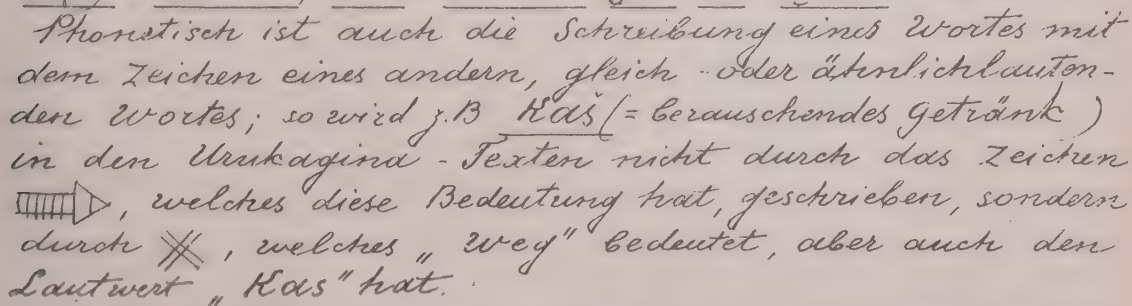 Phonetisch ist auch die Schreibung eines Wortes mit
dem Zeichen eines andern, gleich- oder ähnlichlauten-
den Wortes; so wird z.B Kaš (= berauschendes Getränk)
in den Urukagina-Texten nicht durch das Zeichen
, welches diese Bedeutung hat, geschrieben, sondern
durch , welches „Weg" bedeutet, aber auch den
Lautwert „Kas" hat.